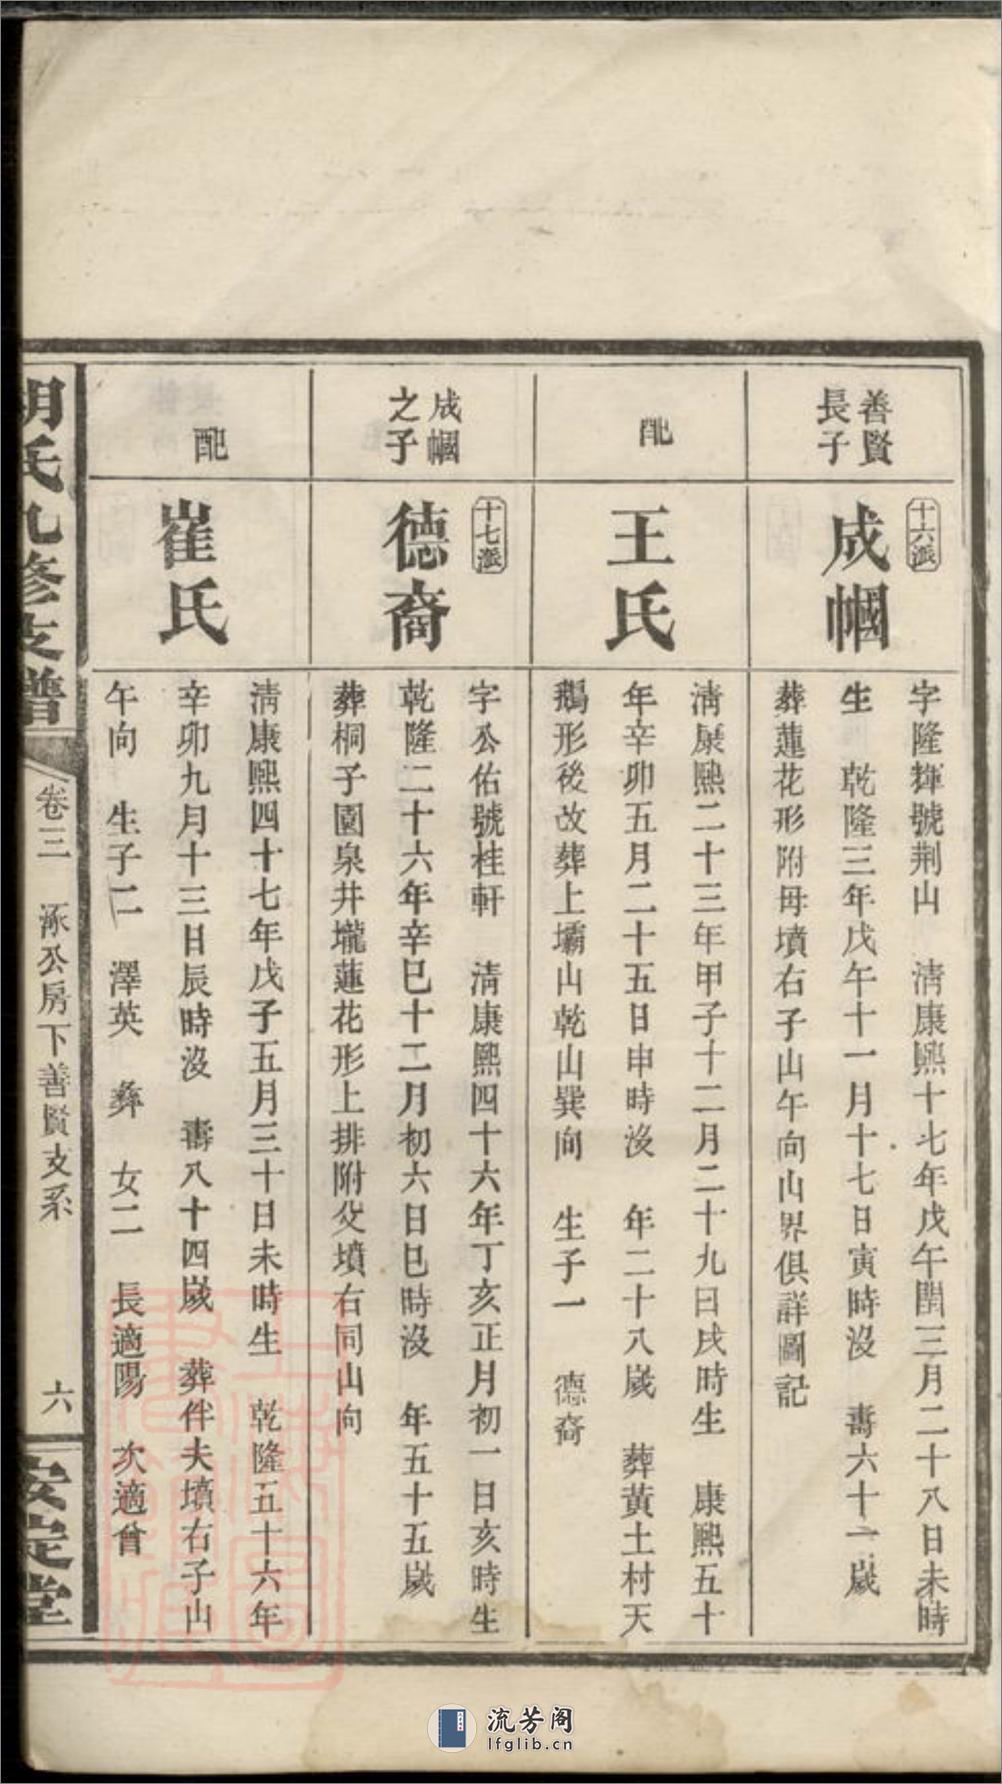 善賢
長子
十六派
成幗
字隆輝號荆山　清康熙十七年戊午閏三月二十八日未時
生　乾隆三年戊午十一月十七日寅時沒　壽六十一歲
葬蓮花形附母墳右子山午向山界俱詳圖記
配
王氏
清康熙二十三年甲子十二月二十九日戌時生　康熙五十
年辛卯五月二十五日申時沒　年二十八歲　葬黃土村天
鵝形後改葬上壩山乾山巽向　生子一　德裔
成幗
之子
十七派
德裔
字公佑號桂軒　清康熙四十六年丁亥正月初一日亥時生
乾隆二十六年辛巳十二月初六日巳時沒　年五十五歲
葬桐子園泉井壠蓮花形上排附父墳右同山向
配
崔氏
清康熙四十七年戊子五月三十日未時生　乾隆五十六年
辛卯九月十三日辰時沒　壽八十四歲　葬伴夫墳右子山
午向　生子二　澤英　彝　女二　長適陽　次適曾
胡氏九修支譜
卷三　涿公房下善賢支系
六
安定堂
流芳阁
lfglib.cn